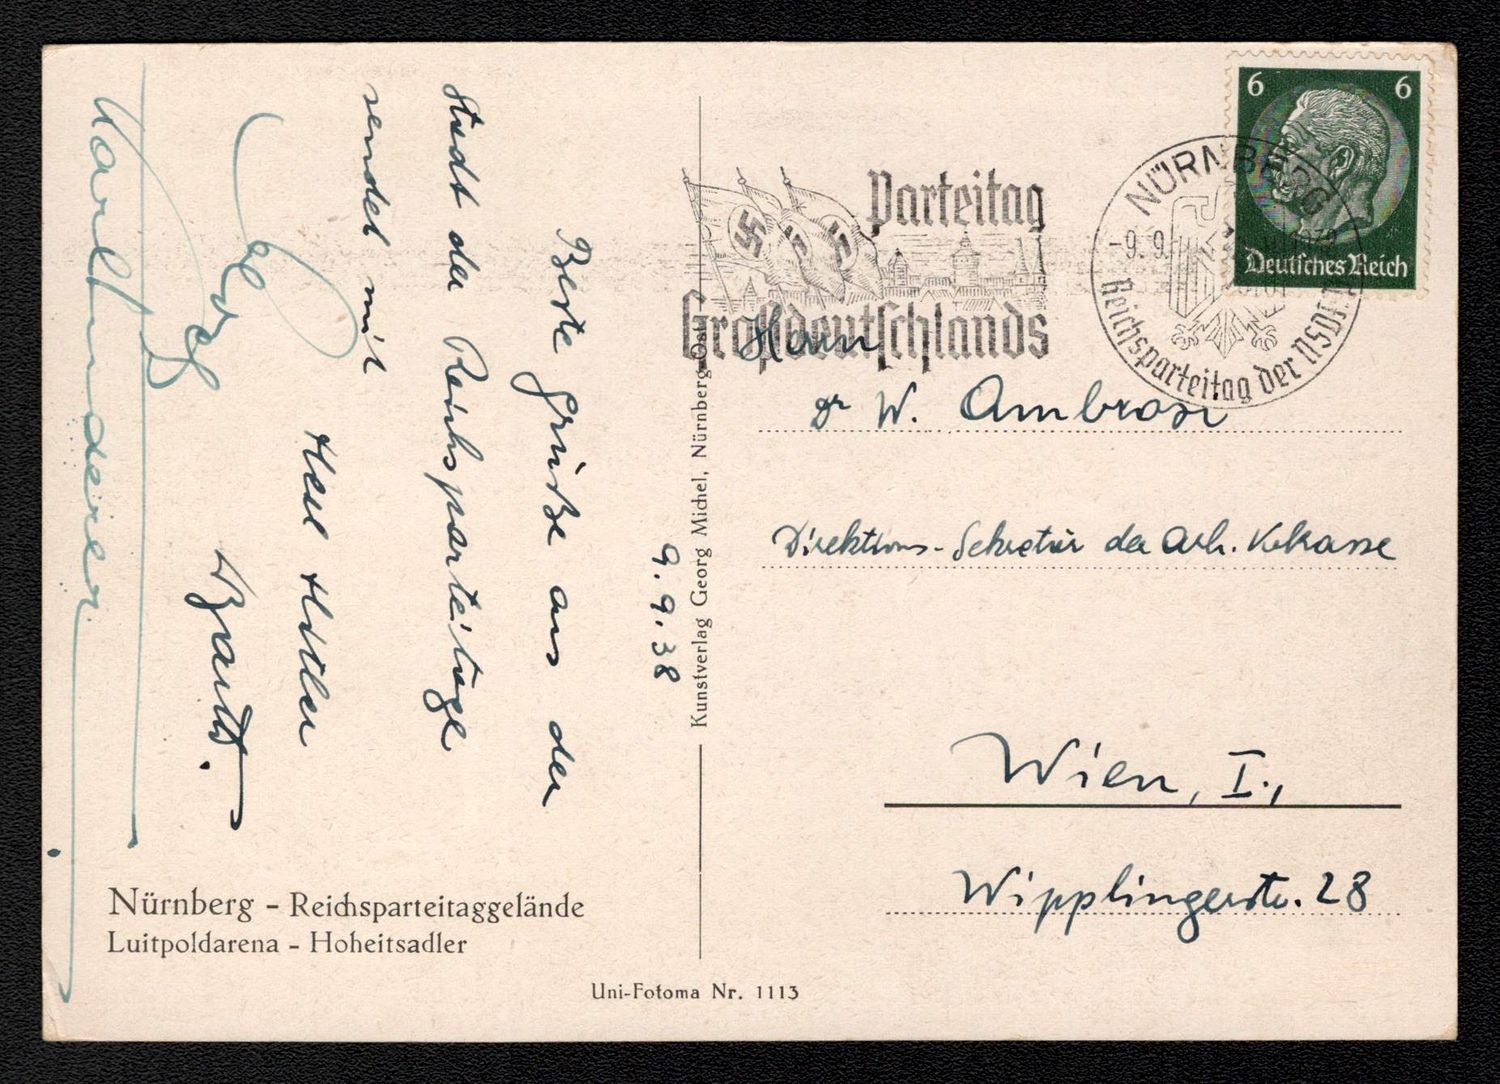 Beste Grüße aus der
Stadt der Reichsparteitage
sendet mit
Heil Hitler
9.9.38
Nürnberg - Reichsparteitaggelände
Luitpoldarena - Hoheitsadler
Kunstverlag Georg Michel, Nürnberg-Ost
Uni-Fotoma Nr. 1113
Parteitag
Großdeutschlands
NÜRNBERG
-9.9.
Reichsparteitag der NSDAP
6 6
Deutsches Reich
Herrn
Dr W. Ambrosi
Direktions-Sekretär der Arb.
Wien, I.,
Wipplingerstr. 28